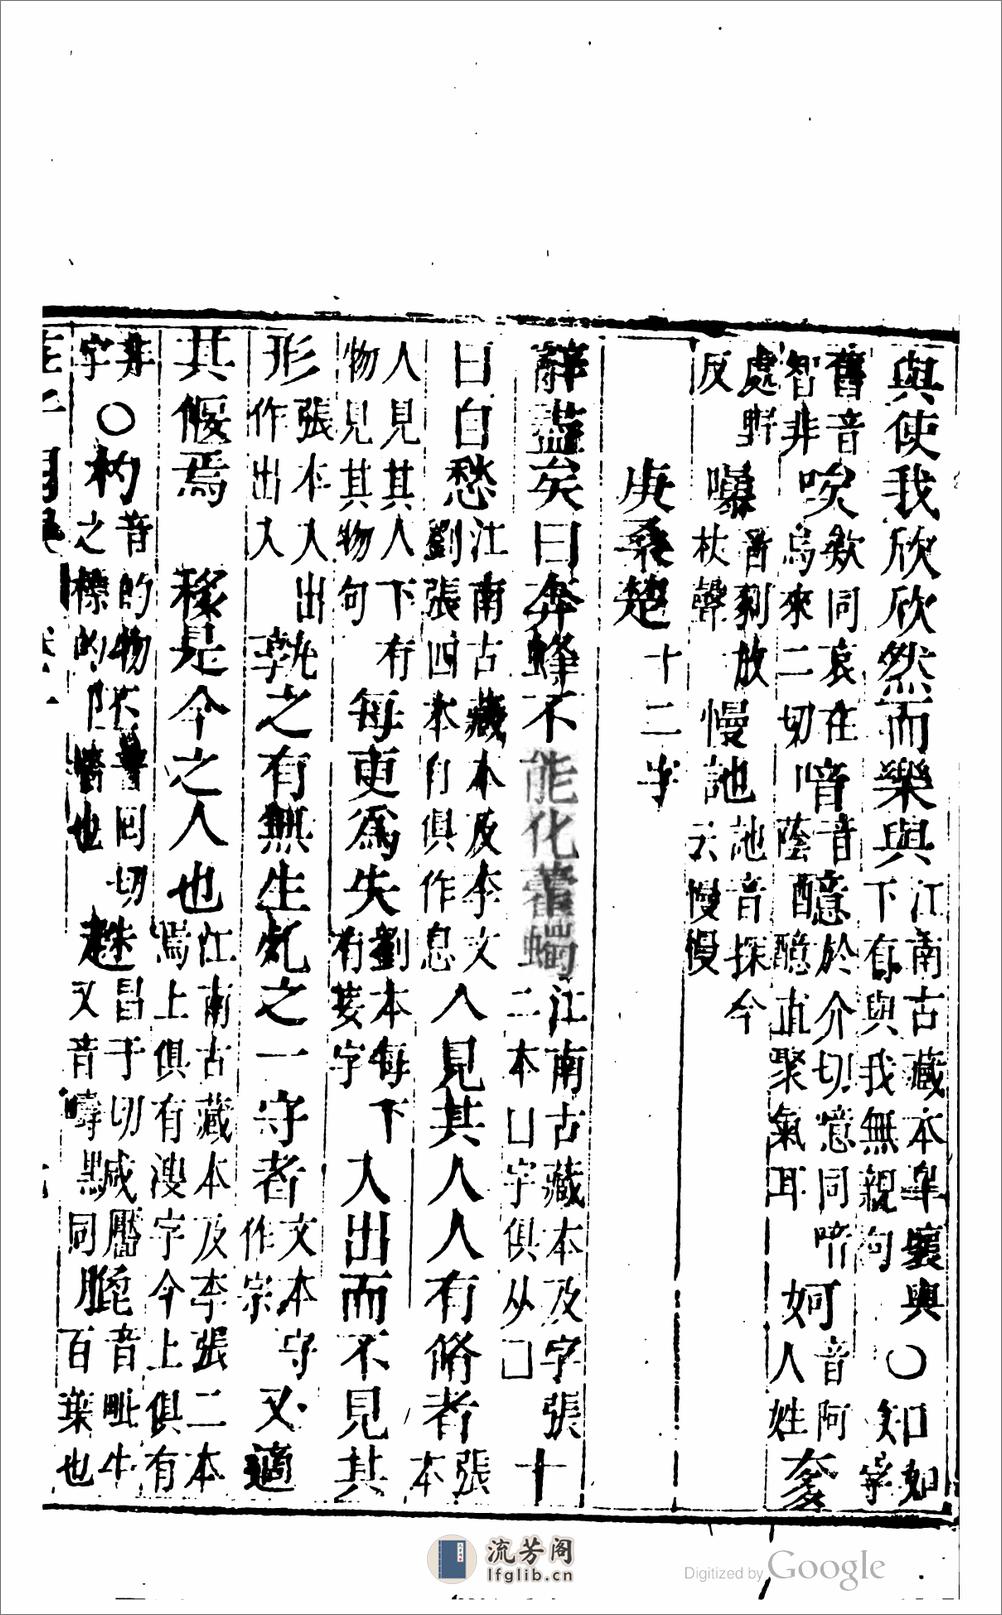 與使我欣欣然而樂與江南古藏本臯壤與下有與我無親句○知如字
舊音智非唉欸同哀在烏來二切喑音蔭醷於介切憶同醷直聚氣耳妸音阿人姓奓
處野反嚗音剝放杖聲慢訑訑音探今云慢慢
庚桑楚十二字
辭盡矣曰奔蜂不能化藿蠋江南古藏本及字張二本口字俱从口十
日自愁江南古藏本及李文劉張四本自俱作息人見其人人有脩者張本
人見其人下有物見其物句每更爲失劉本每下有妄字入出而不見其
形張本入出作出入孰之有無生死之一守者文本守作宗又適
其偃焉移是今之人也江南古藏本及李張二本焉上俱有溲字今上俱有
非字○杓音的物之標的也趎昌于切又音疇黶同膍音毗牛百葉也
流芳阁
lfglib.cn
Digitized by Google